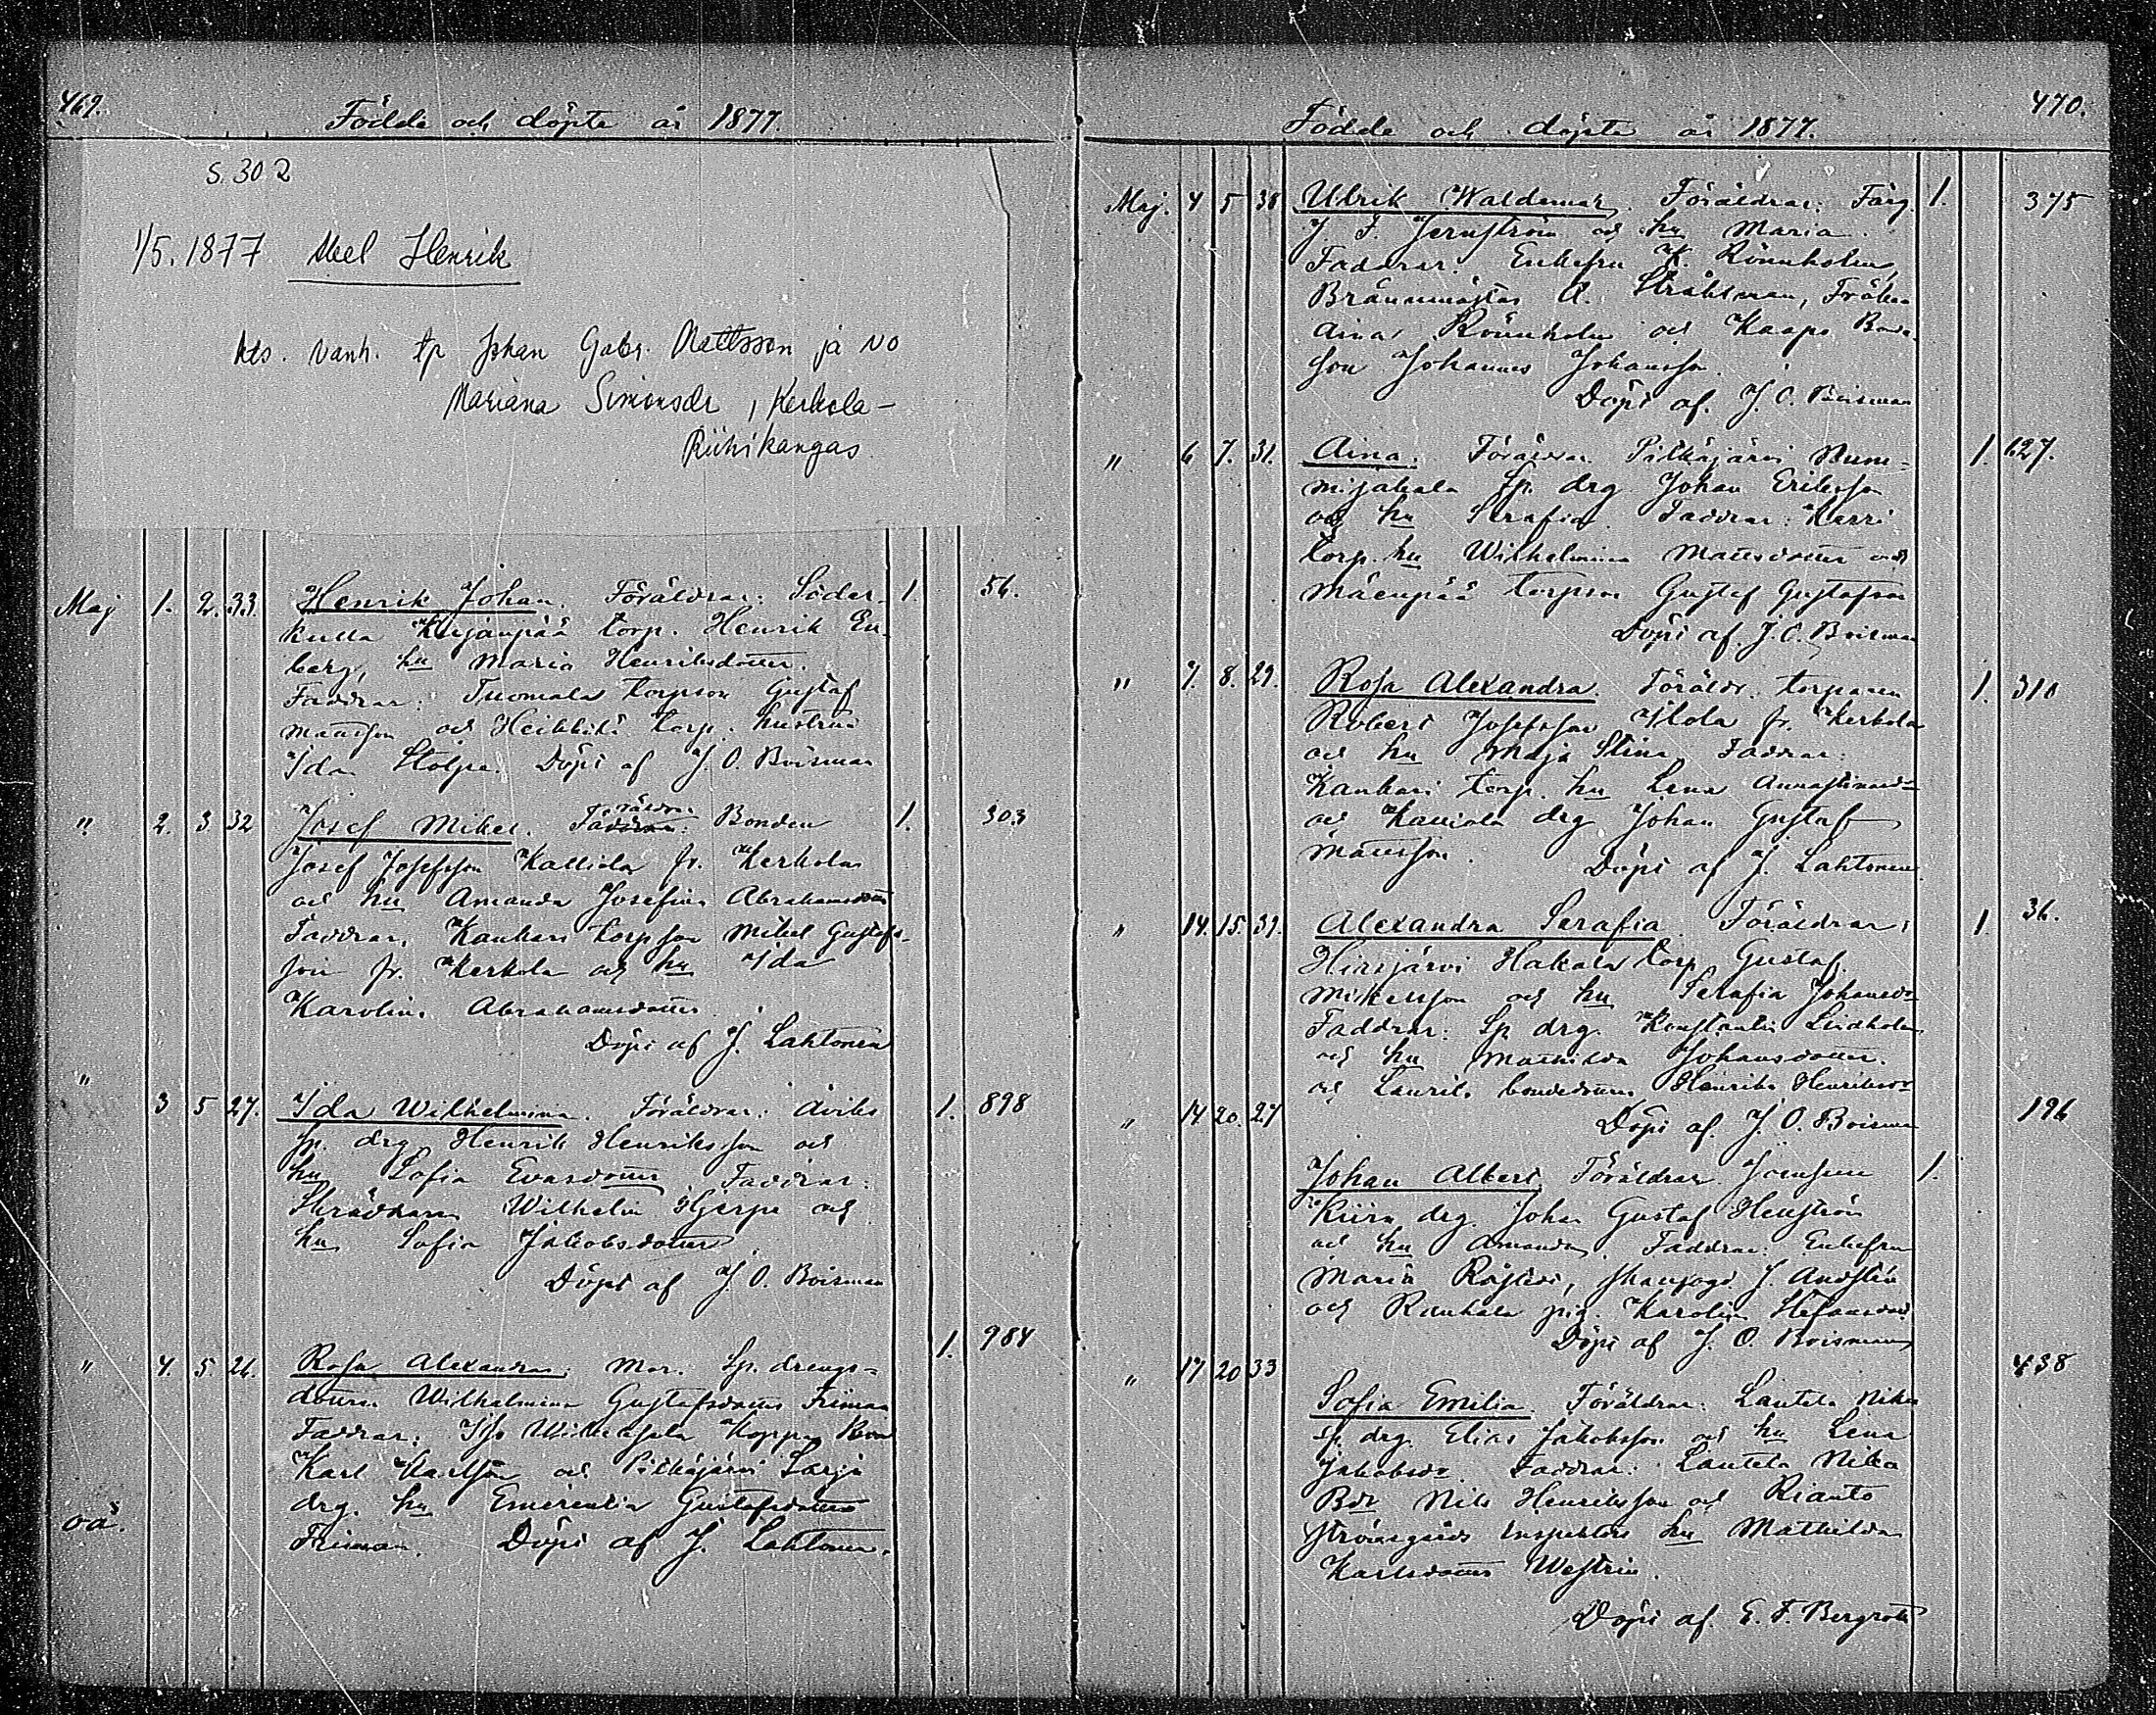 469.
Födde och döpte år 1877.
S. 302
1/5. 1877 Abel Henrik
kts. vanh. tp Johan Gabr. Mattsson ja vo
Mariana Simonsdr, Kerkola-
Riihikangas
Maj 1. 2. 33. Henrik Johan. Föräldrar: Söder- 1. 56.
kulla Kujanpää torp. Henrik En-
berg, hu Maria Henriksdotter.
Faddrar: Tuomala torpson Gustaf
Mattsson och Heikkilä torp. hustru
Ida Stolpe. Döpt af J. O. Boisman
" 2. 3. 32 Josef Mikel. Föräldrar: Bonden 1. 303
Josef Josefsson Kalliola fr. Kerkola
och hu Amanda Josefina Abrahamsdotter
Faddrar. Kankari torpson Mikel Gustafs-
son fr. Kerkola och hu Ida
Karolina Abrahamsdotter
Döpt af J. Lahtonen
" 3 5 27. Ida Wilhelmina. Föräldrar: Åviks 1. 898
sp. drg Henrik Henriksson och
hu Sofia Evasdotter Faddrar:
Skräddaren Wilhelm Hjerpe och
hu Sofia Jakobsdotter
Döpt af J. O. Boisman
" 4. 5. 26. Rosa Alexandra. Mor. Sp. drengs- 1. 984
dottern Wilhelmina Gustafsdotter Friman
Faddrar: Koppa
Karl Karlsson och Pitkäjärvi Sarja
drg. hu Emerentia Gustafsdotter
oä. Friman. Döpt af J. Lahtonen.
470.
Födde och döpte år 1877.
Maj. 4 5 38 Ulrik Waldemar. Föräldrar: Färg. 1. 375
J. F. Jernström och hu Maria.
Faddrar: Enkefru K. Rönnholm,
Brännmästar A. Stråhlman, Fröken
Aina Rönnholm och Kaapo Bond-
son Johannes Johansson.
Döpt af. J. O. Boisman
" 6 7. 31. Aina. Föräldrar Pitkäjärvi Num- 1. 627.
mijakala Sp. drg Johan Eriksson
och hu Serafia. Faddrar: Karri
torp. hu Wilhelmina Mattsdotter och
Mäenpää torpson Gustaf Gustafsson
Döpt af. J. O. Boisman
" 7. 8. 29. Rosa Alexandra. Föräldr. torparen 1. 310
Robert Josefsson Ylola fr. Kerkola
och hu Maja Stina Faddrar:
Kankari torp. hu Lena
och Kaniola drg Johan Gustaf
Mattsson. Döpt af J. Lahtonen.
" 14. 15. 39. Alexandra Serafia. Föräldrar: 1 36.
Hirsjärvi Hakala torp Gustaf
Mikelsson och hu Serafia Johansdr
Faddrar: Sp. drg. Konstantin Lindholm
och hu Mathilda Johansdotter.
och Laurila bondedottern Henrika Henriksdr
" 14. 20. 27 Döpt af. J. O. Boisman 196
Johan Albert. Föräldrar 1.
Kiirn drg. Johan Gustaf Henström
och hu Amanda. Faddrar: Enkefru
Maria J. Andstén
och Rauhala pig. Karolina Stefansdr.
Döpt af J. O. Boisman
" 17 20 33 438
Sofia Emilia. Föräldrar: Lautela Nika
sp. drg. Elias Jakobsson och hu Lena
Jakobsdr. Faddrar: Lautela Nika
Bdr Nils Henriksson och Rianto
hu Mathilda
Karlsdotter Westrin.
Döpt af. E. F. Bergroth